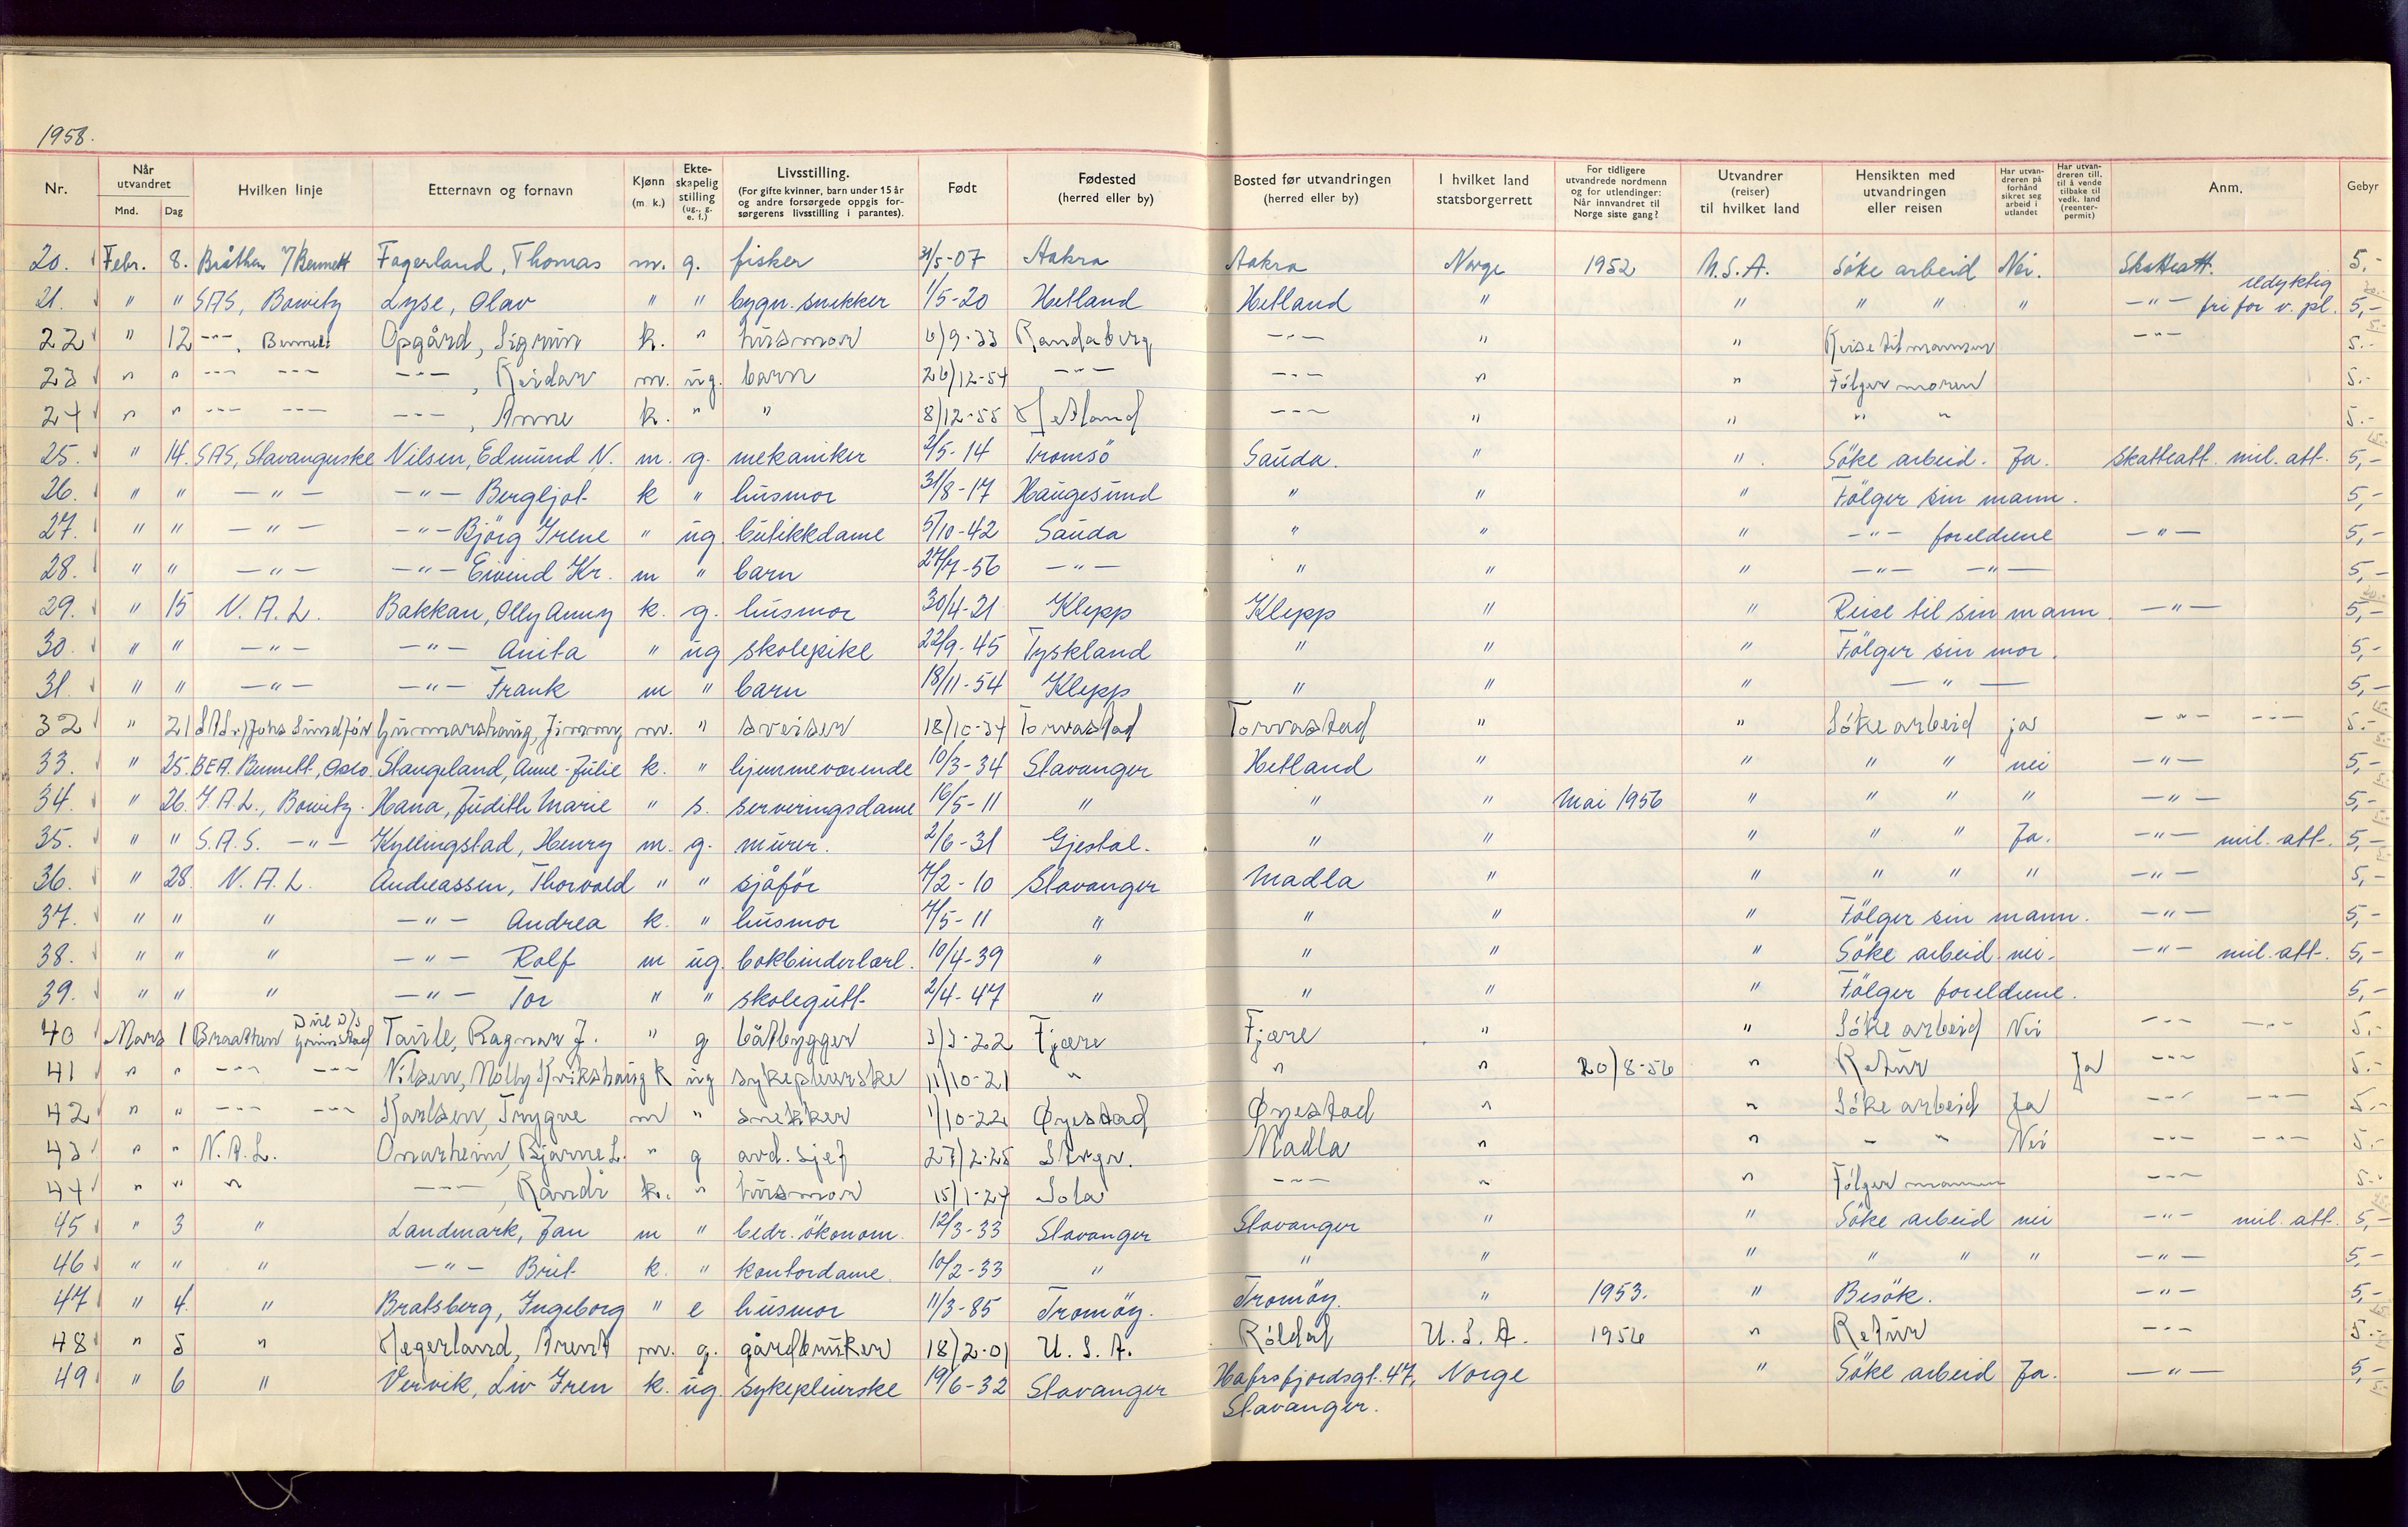 1958.
Nr. Når utvandret Mnd. Dag Hvilken linje Etternavn og fornavn Kjønn (m. k.) Ekteskapelig stilling (ug., g. e. f.) Livsstilling. (For gifte kvinner, barn under 15 år og andre forsørgede oppgis forsørgerens livsstilling i parantes). Født Fødested (herred eller by) Bosted før utvandringen (herred eller by) I hvilket land statsborgerrett For tidligere utvandrede nordmenn og for utlendinger: Når innvandret til Norge siste gang? Utvandrer (reiser) til hvilket land Hensikten med utvandringen eller reisen Har utvandreren på forhånd sikret seg arbeid i utlandet Har utvandreren till. til å vende tilbake til vedk. land (reenterpermit) Anm. Gebyr
20. Febr. 8. Bråthen 7/Bennett Fagerland, Thomas m. g. fisker 31/5-07 Aakra Aakra Norge 1952 U.S.A. Söke arbeid Nei. Skatteatt. 5,-
21. " " SAS, Bowitz Lyse, Olav " " bygn. snekker 1/5-20 Hetland Hetland " " " " " -"- udyktig fri for v. pl. 5,-
22 " 12 -"-, Bennett Opgård, Sigrun k. " husmor 6/9-33 Randaberg -"- " " Reise til mannen -"- 5.-
23 " " -"- -"- -"-, Reidar m. ug. barn 26/12-54 -"- -"- " " Følger moren 5.-
24 " " -"- -"- -"-, Anne k. " " 8/12-55 Hetland -"- " " " " 5.-
25. " 14. SAS, Stavangerske Nilsen, Edmund N. m. g. mekaniker 2/5-14 Tromsö Sauda. " " Söke arbeid. Ja. Skatteatt. mil. att. 5,-
26. " " -"- -"- Bergljot k " husmor 31/8-17 Haugesund " " " Følger sin mann. 5,-
27. " " -"- -"- Björg Irene " ug butikkdame 5/10-42 Sauda " " " -"- foreldrene -"- 5,-
28. " " -"- -"- Eivind Kr. m " barn 27/7-56 -"- " " " -"- -"- 5,-
29. " 15 N.A.L. Bakkan, Olly Anny k. g. husmor 30/4-21 Klepp Klepp " " Reise til sin mann. -"- 5,-
30. " " -"- -"- Anita " ug skolepike 22/9-45 Tyskland " " " Følger sin mor. 5,-
31. " " -"- -"- Frank m " barn 18/11-54 Klepp " " " -"- 5,-
32 " 21 Johs Sundför Gunnarshaug, Jimmy m. " sveiser 18/10-34 Torvastad Torvastad " " Söke arbeid ja -"- -"- 5.-
33. " 25. BEA. Bennett, Oslo Stangeland, Anne-Julie k. " hjemmeværende 10/3-34 Stavanger Hetland " " " " nei -"- 5,-
34. " 26. I.A.L., Bowitz. Hana, Judith Marie " s. serveringsdame 16/5-11 " " " Mai 1956 " " " " -"- 5,-
35. " " S.A.S. -"- Kyllingstad, Henry m. g. murer. 2/6-31 Gjestal. " " " " " Ja. -"- mil. att. 5,-
36. " 28. N.A.L. Andreassen, Thorvald " " sjåför 7/2-10 Stavanger Madla " " " " " -"- 5,-
37. " " " -"- Andrea k. " husmor 7/5-11 " " " " Følger sin mann. -"- 5,-
38. " " " -"- Rolf m ug. bokbinderlærl. 10/4-39 " " " " Söke arbeid nei. -"- mil. att. 5,-
39. " " " -"- Tor " " skolegutt 2/4-47 " " " " Følger foreldrene. 5,-
40 Mars 1 Braathen Grimstad Taule, Ragnar J. " g båtbygger 3/3-22 Fjære Fjære " " Söke arbeid Nei -"- -"- 5.-
41 " " -"- -"- Nilsen, Molly Kvikshaug k ug sykepleierske 11/10-21 " " " 20/8-56 " Retur Ja -"- 5.-
42 " " -"- -"- Karlsen, Trygve m " snekker 1/10-22 Øyestad Øyestad " " Söke arbeid Ja -"- -"- 5.-
43 " " N.A.L. Omarheim, Bjarne L. " g avd. sjef 27/2-25 Stvgr. Madla " " - " Nei -"- -"- 5.-
44 " " " -"-, Randi k. " husmor 15/1-27 Sola -"- " " Følger mannen -"- 5.-
45 " 3 " Landmark, Jan m " bedr. ökonom. 12/3-33 Stavanger Stavanger " " Söke arbeid nei -"- mil. att. 5,-
46 " " " -"- Brit k. " kontordame. 10/2-33 " " " " " " " -"- 5,-
47 " 4. " Bratsberg, Ingeborg " e husmor 11/3-85 Tromöy. Tromöy. " 1953. " Besök. -"- 5,-
48 " 5 " Hegerland, Arent m. g. gårdbruker 18/2-01 U.S.A. Röldal U.S.A. 1956 " Retur -"- 5.-
49 " 6 " Vervik, Liv Iren k. ug. sykepleierske 19/6-32 Stavanger Hafrsfjordsgt. 47, Norge " Söke arbeid Ja. -"- 5,-
Stavanger.